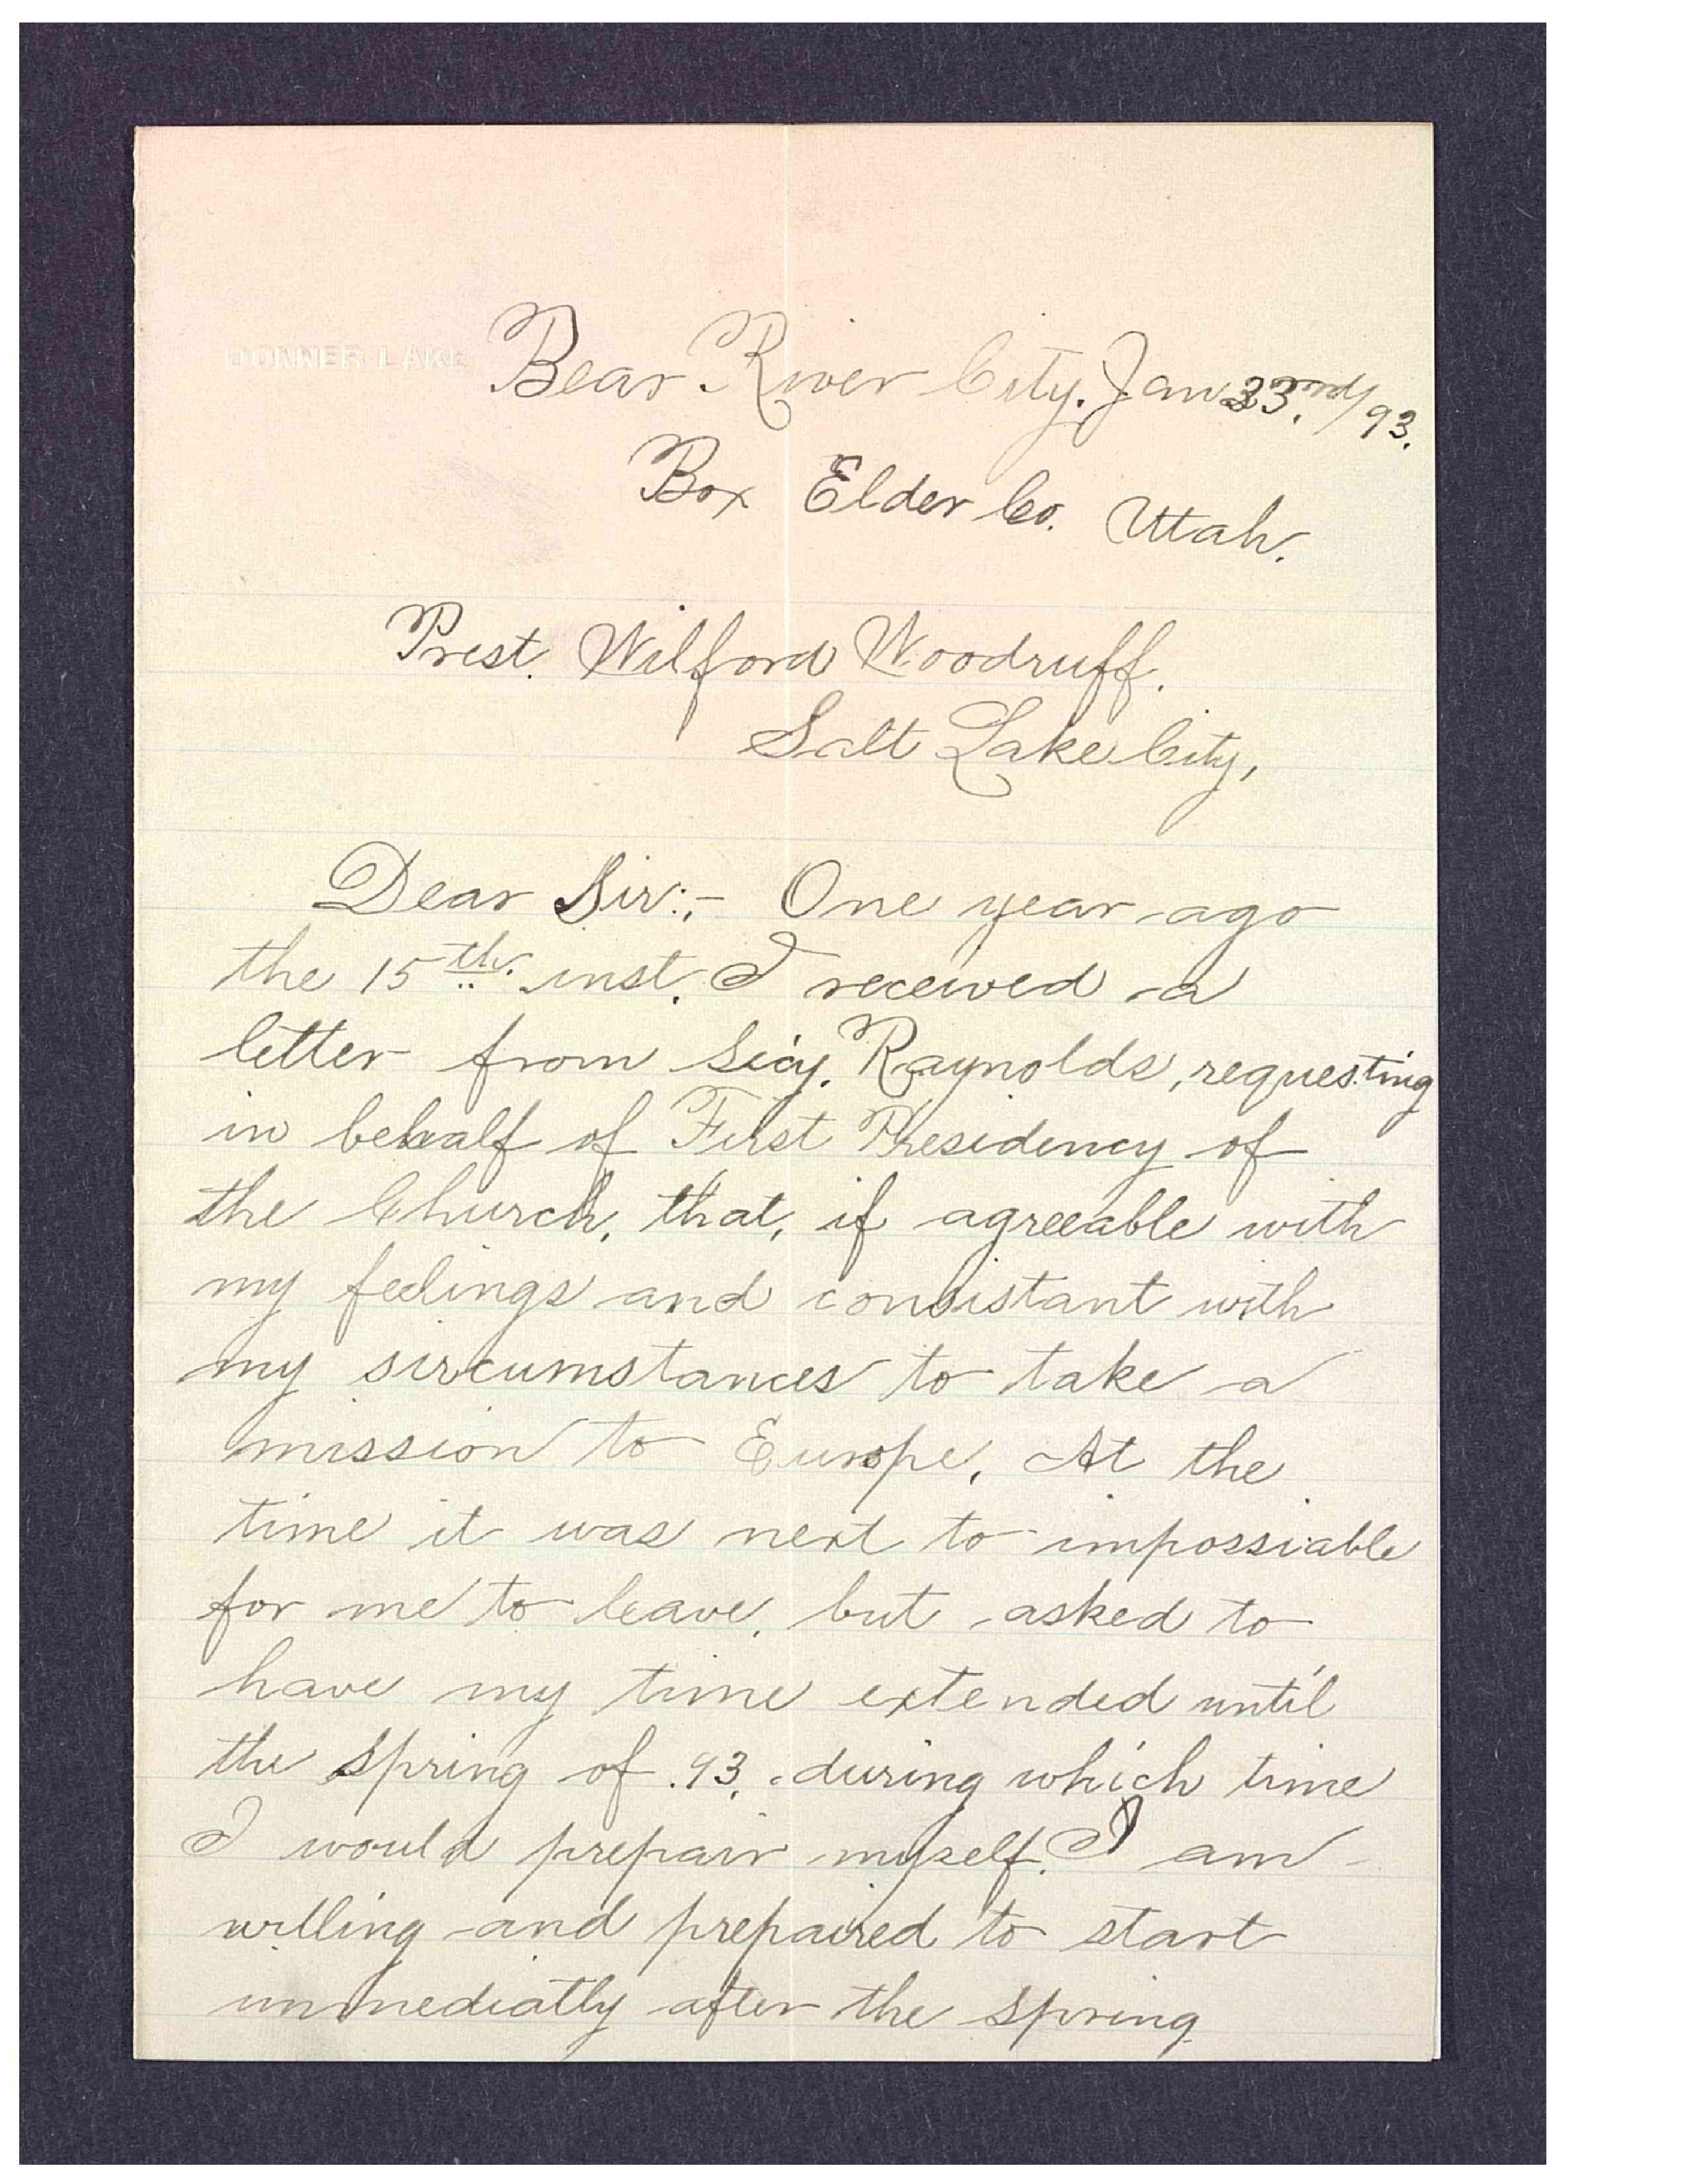 DONNER LAKE
Bear River City. Jan 23.rd/93.
Box Elder Co. Utah.
Prest. Wilford Woodruff.
Salt Lake City,
Dear Sir:,- One year ago
the 15th. inst. I received a
letter from Secy. Raynolds, requesting
in behalf of First Presidency of
the Church, that, if agreeable with
my feelings and consistant with
my sircumstances to take a
mission to Europe. At the
time it was next to impossiable
for me to leave, but asked to
have my time extended until
the spring of .93. during which time
I would prepair myself. I am
willing and prepaired to start
immediatly after the spring